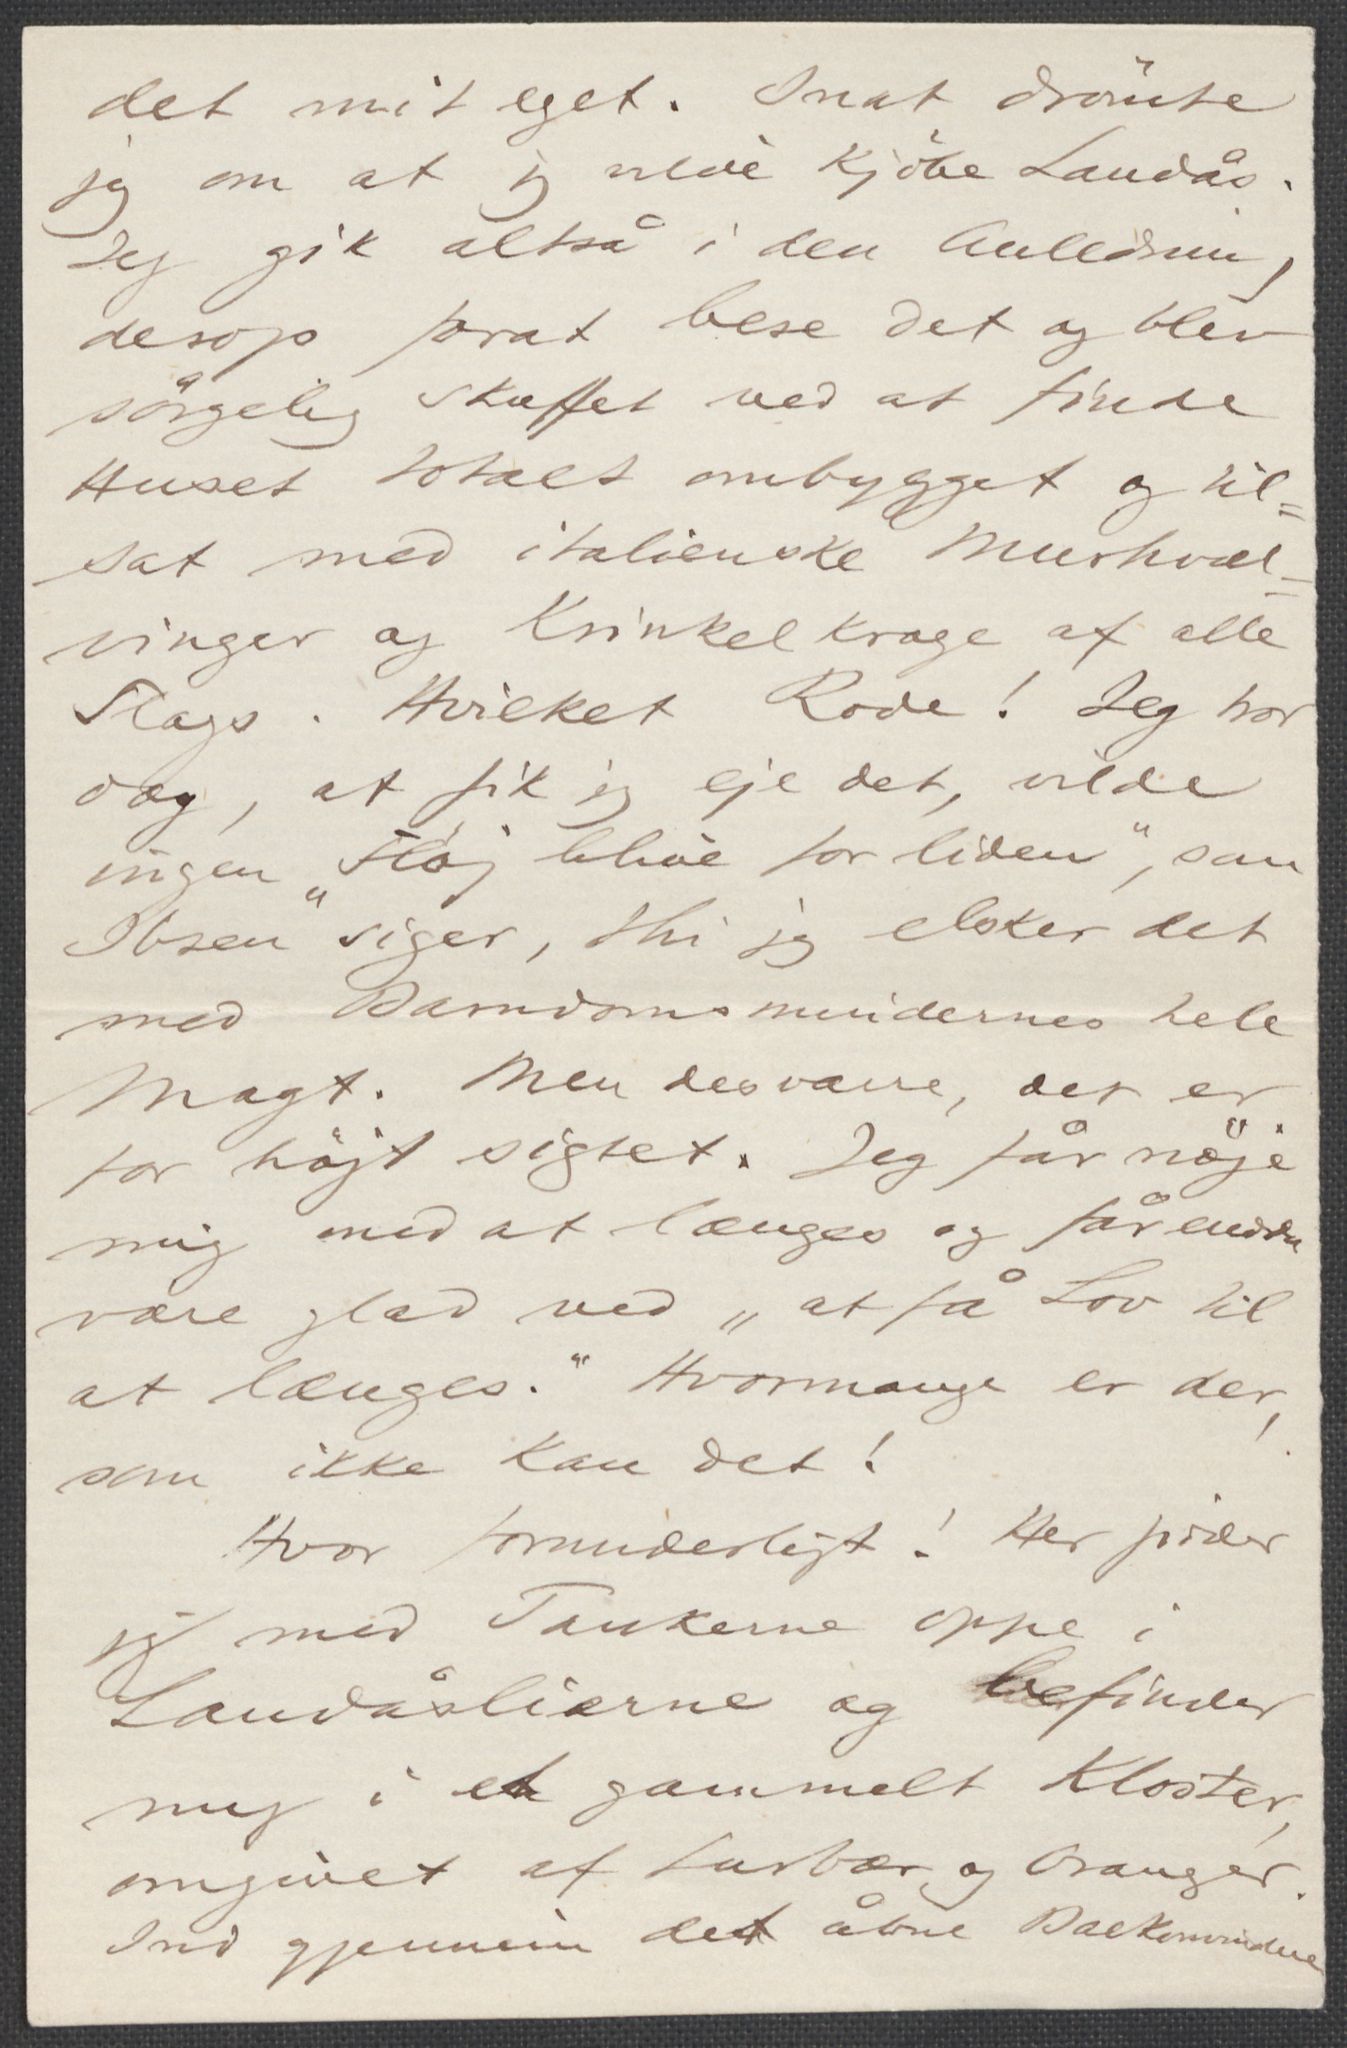 det mit eget. Inat drömte
jeg om at jeg vilde kjöbe Landås.
Jeg gik altså i den Anledning,
desop forat bese det og blev
sörgelig skuffet ved at finde
Huset totalt ombygget og til=
sat med italienske Murhvæl=
vinger og Krinkelkroge af alle
Slags. Hvilket Rode! Jeg tror
dog, at fik jeg eje det, vilde
ingen „Fløj blive for liden“, som
Ibsen siger, thi jeg elsker det
med Barndomsmindernes hele
Magt. Men desværre, det er
for höjt sigtet. Jeg får nøje
mig med at længes og får endda
være glad ved „at få Lov til
at længes.“ Hvormange er der,
som ikke kan det!
Hvor forunderligt! Her sidder
jeg med Tankerne oppe i
Landåslierne og befinder
mig i et gammelt Kloster,
omgivet af Laurbær og Oranger.
Ind gjennem det åbne Balkonvindue